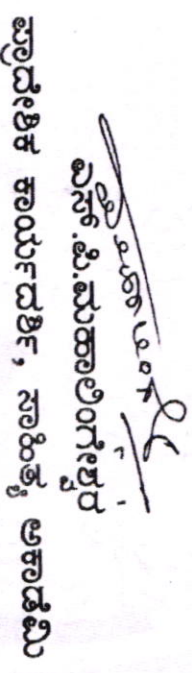 ಎಸ್.ಪಿ.ಮಹಾಲಿಂಗೇಶ್ವರ
ಪ್ರಾದೇಶಿಕ ಕಾರ್ಯದರ್ಶಿ, ಸಾಹಿತ್ಯ ಅಕಾಡೆಮಿ